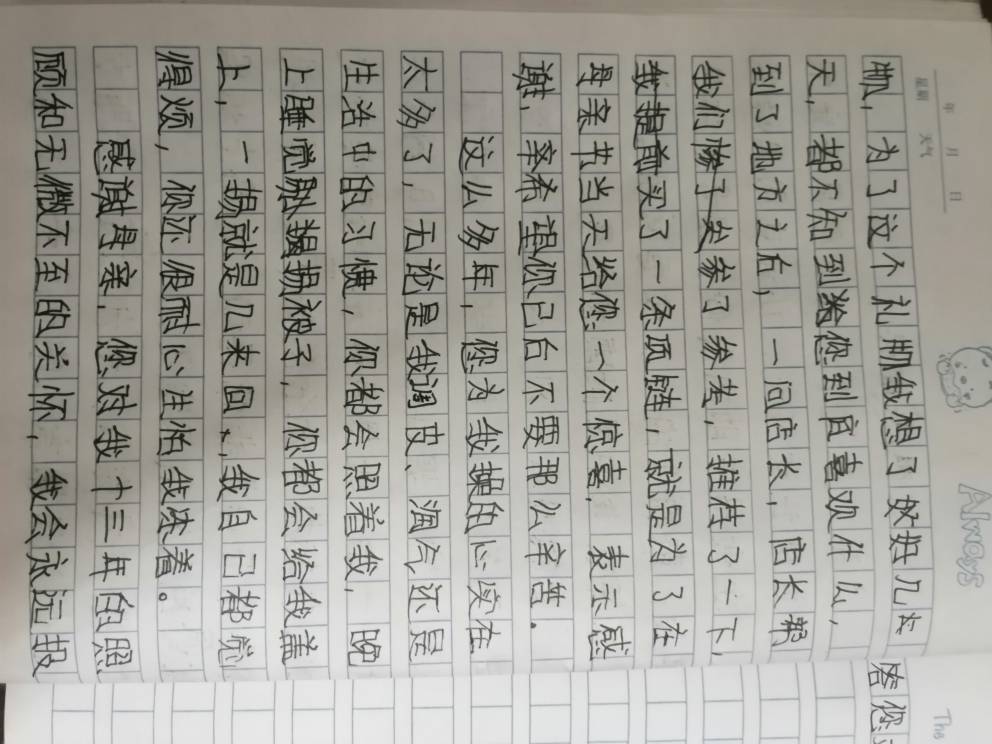 年 月 日
星期 天气
Always
肌，为了这个礼肌我想了好好几天
天，都不知到给您到底喜欢什么，
到了地方之后，一问店长，店长帮
我们修了一类参了参考，推荐了一下，
我提前买了一条项链，就是为了在
母亲节当天给您一个惊喜，表示感
谢，幸希望你已后不要那么辛苦。
这么多年，您为我操的心实在
太多了，无论是我调皮、淘气还是
生活中的习惯，你都会照着我，晚
上睡觉踢被子，你都会给我盖
上，一揭就是几来回，我自己都觉
得烦，你还很耐心生怕我冻着。
感谢母亲，您对我十三年的照
顾和无微不至的关怀，我会永远报
答您
The